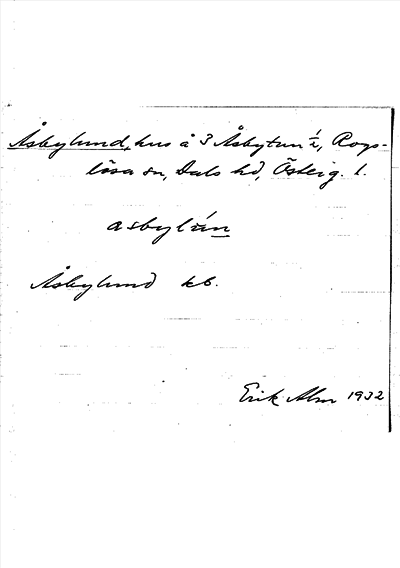 Åsbylund, hus å 3 Åsbytun ½, Rogs-
lösa sn, Dals hd, Österg. l.
asbylún
Åsbylund kb.
Erik Alm 1932